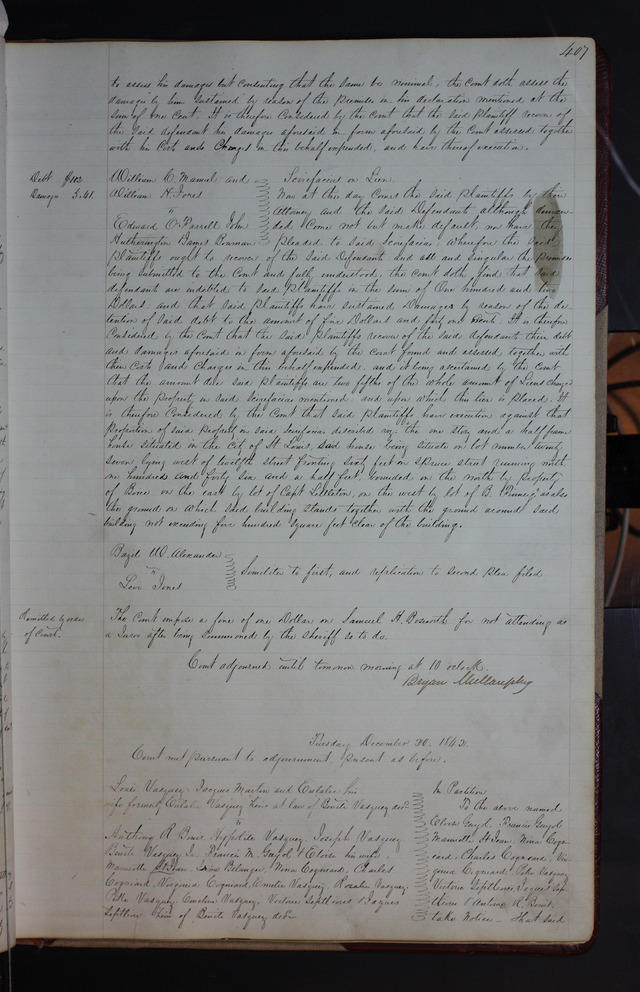 407
to assess his damages but consenting that the same be nominal, the Court doth assess the
damages by him sustained by reason of the Premises in his declaration mentioned at the
sum of one Cent. It is therefore Considered by the Court that the said Plaintiff recover of
the said defendant his damages aforesaid in form aforesaid by the Court assessed together
with his Costs and Charges in this behalf expended, and have thereof execution.
Debt $102
Damages 5.41.
William C. Mamel and
William H. Jones
vs
Edward O'Farrell John
Hetherington James Bowman
Scirefacias on Lien
Now at this day comes the said Plaintiffs by their
Attorney and the said Defendants although
Come not but make default, nor have they
Pleaded to said scirefacias wherefore the said
Plaintiffs ought to recover of the said Defendants and all and singular the Premises
being submitted to the Court and fully understood, the Court doth find that said
defendants are indebted to said Plaintiffs in the sum of One hundred and two
Dollars and that said Plaintiffs have sustained Damages by reason of the de
tention of said debt to the amount of five Dollars and forty one Cents. It is therefore
Considered by the Court that the said Plaintiffs recover of the said defendants their debt
and damages aforesaid in form aforesaid by the Court found and assessed together with
their Costs and Charges in this behalf expended, and it being ascertained by the Court
that the amount due said Plaintiffs are two fifths of the whole amount of Liens charged
upon the property in said scirefacias mentioned and upon which this lien is placed. It
is therefore Considered by the Court that said Plaintiffs have execution against that
proportion of said property in said scirefacias described viz: the one story and a half frame
house situated in the City of St Louis, said house being situate on lot number twenty
seven lying west of twelfth street fronting sixty feet on Spruce street running north
one hundred and forty six and a half feet, bounded on the north by property
of Bone on the east by lot of Capt Littleton, on the west by lot of B. as also
the ground on which said building stands together with the ground around said
building not exceeding five hundred square feet clear of the building.
Bazil W. Alexander
vs
Levi Jones
Similiter to first, and replication to second plea filed
Remitted by order
of Court.
The Court impose a fine of one Dollar on Samuel H. Bosworth for not attending as
a Juror after being summoned by the sheriff so to do.
Court adjourned until tomorrow morning at 10 oclock.
Bryan Mullanphy
Tuesday December 20. 1842.
Court met pursuant to adjournment, present as before.
Louis Vasquez, Jacques Martin and Eulalie his
wife formerly Eulalie Vasquez heirs at law of Benite Vasquez decd
vs
Anthony R Bouis Hypolite Vasquez Joseph Vasquez
Benite Vasquez Jr. Francis M. Guyol & Eloise his wife
Mannette St Jean, Belanger, Nina Cogniard, Charles
Cogniard, Virginia Cogniard, Amelie Vasquez, Rosalie Vasquez
Pike Vasquez, Emeline Vasquez, Victoire Septlivres & Jaques
Septlivre heirs of Benite Vasquez decd
In Partition
To the above named
Eloise Guyol, Francis Guyol
Mannette St Jean, Nina Cogn
card, Charles Cogniard, Vir
ginia Cogniard, Pike Vasquez
Victoire Septlivres, Jaques Sep
tlivre & Antoine R. Bouis.
take Notice - that said